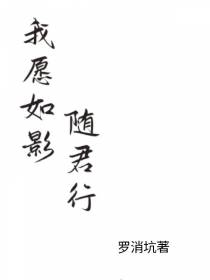 我愿如影
随君行
罗消坑著